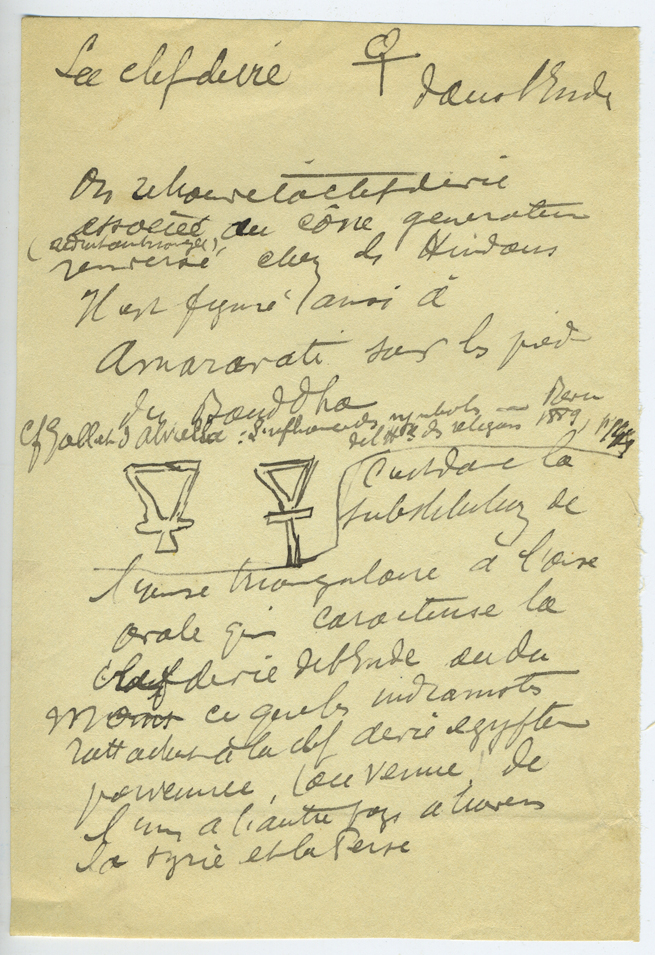 La clef de vie
dans l'Inde
On retrouve la clef de vie
associée au cône generateur
renversé chez les Hindous
Il est figuré ainsi à
Amaravati sur les pieds
du Bouddha
Cf Goblet d'Alviella : Influence des symboles Revue
de l'Hre des religions 1889,
C'est dans la
substitution de
l'anse triangulaire à l'anse
ovale qui caracterise la
clef de vie de l'Inde ou du
moins ce que les indianistes
rattachent à la clef de vie egyptienne
parvenue, (ou venue) de
l'un à l'autre pays à travers
la Syrie et la Perse